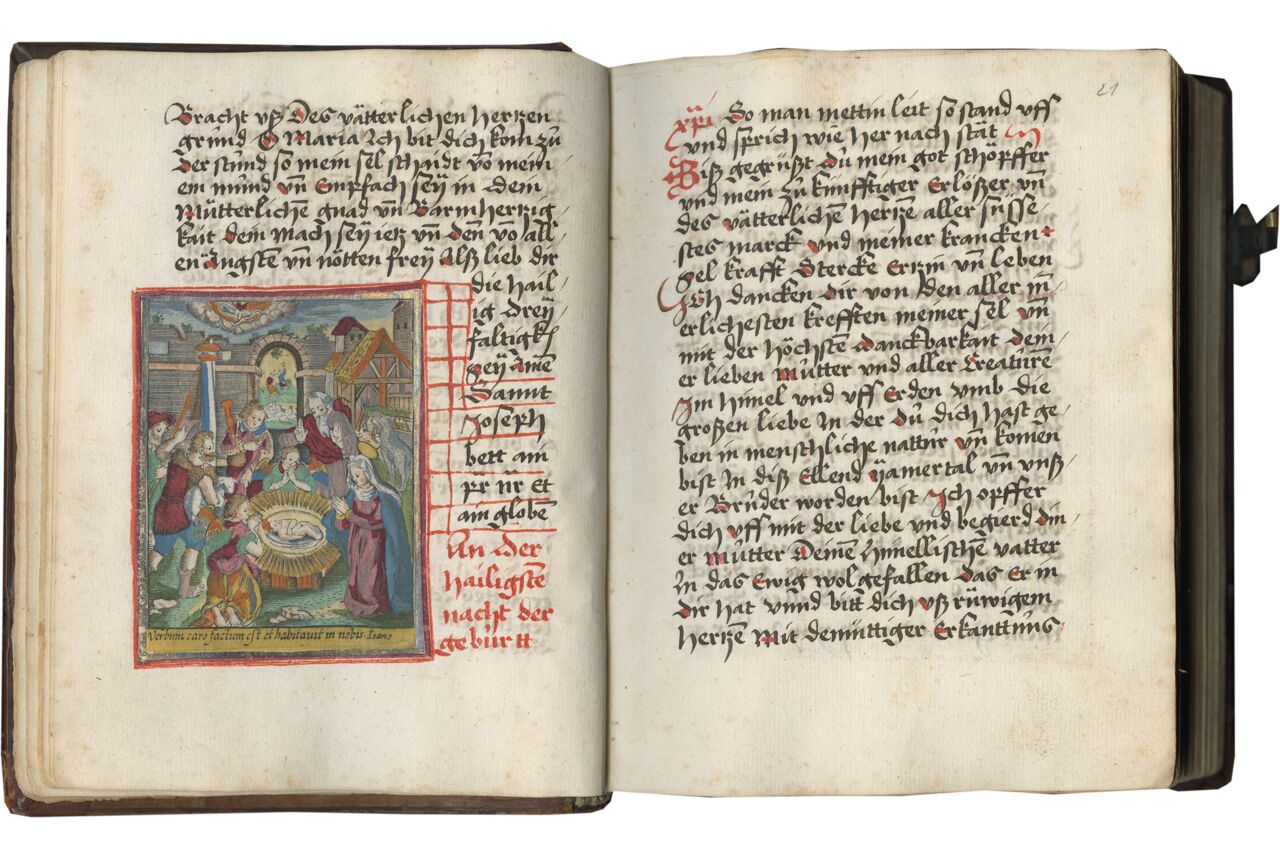 Bracht uß Des vätterlichen hertzen
grund O Maria Ich bit dich kom zů
Der stund so mein sel schaidt vō mein
em mund vn̄ Empfach seÿ in dem
Mütterlichē gnad vn̄ Barmhertzig
kait dem mach seÿ ietz vn̄ den vō all
en Ängstē vn̄ nötten freÿ Alß lieb dir
die hail
ig dreÿ
faltigk
seÿ Amē
Sannt
Joseph
bett ain
pr nr et
ain globē
An der
hailigstē
nacht der
geburtt
Verbum caro factum est et habitavit in nobis. Ioan
21
xp̄i So man mettin leit so stand uff
und sprich wie her nach stät
Biß gegrüßt dů mein got schöpffer
und mein zů künfftiger Erlößer vn̄
des vätterlichē hertzē aller süsse
stes marck und meiner krancken
sel krafft Stercke Ertzin vn̄ leben
Ich dancken dir von den aller in̄
erlichesten krefften meiner sel vn̄
mit der höchstē danckbarkait dein
er lieben mütter und aller Creaturē
Im himel und uff Erden umb die
großen liebe In der dů dich hast ge
ben in menschliche nattur vn̄ komen
bist In diß Ellend ÿamertal vn̄ unß
er Brůder worden bist Ich opffer
dich uff mit der liebe und begierd din
er můtter Deinē himellischē vatter
In das Ewig wolgefallen das Er in
dir hat unnd bitt dich uß růwigem
hertzē Mit demüttiger Erkanttnus